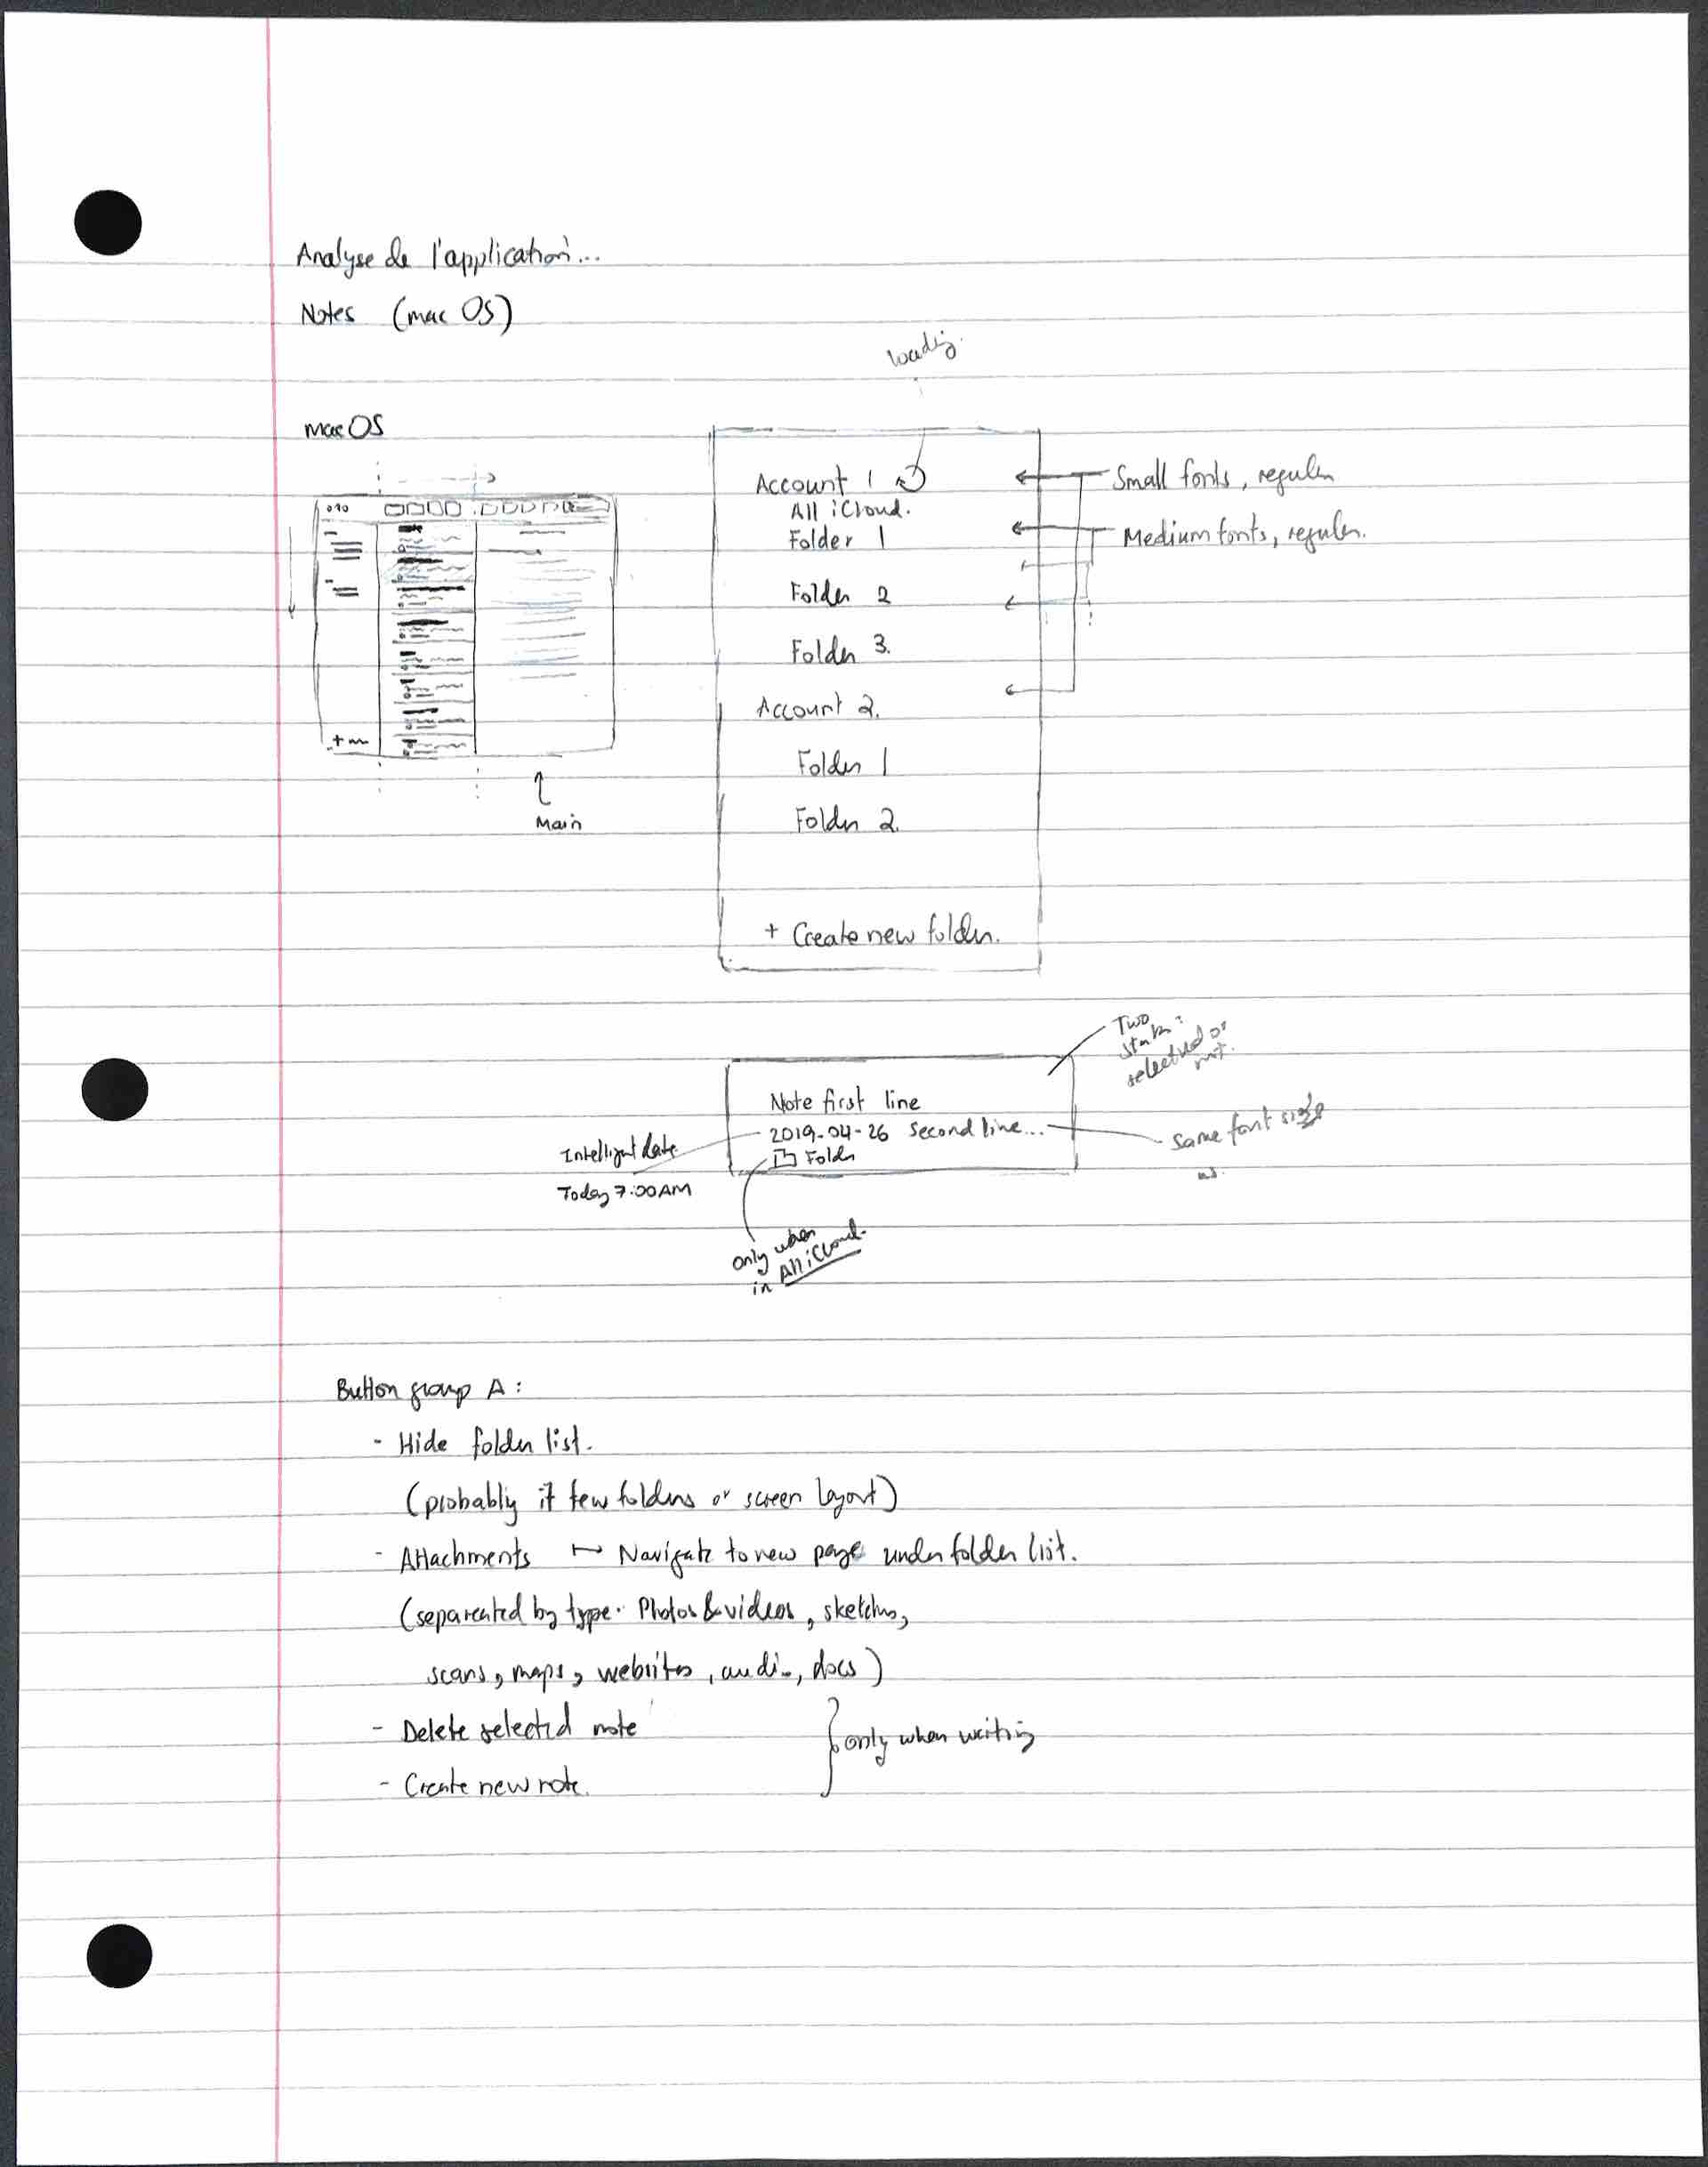 Analyse de l'application...
Notes (mac OS)
loading.
mac OS
Account 1
All iCloud.
Folder 1
Folder 2
Folder 3.
Account 2.
Folder 1
Folder 2.
+ Create new folder.
Small fonts, regular
Medium fonts, regular.
+
Main
Two
states:
selected or
not.
Note first line
2019-04-26 second line...
Folder
Intelligent date
Today 7:00AM
same font size
only when
in All iCloud.
Button group A:
- Hide folder list.
(probably if few folders or screen layout)
- Attachments ↦ Navigate to new page under folder list.
(separated by type. Photos & videos, sketches,
scans, maps, websites, audio, docs)
- Delete selected note
- Create new note.
only when writing